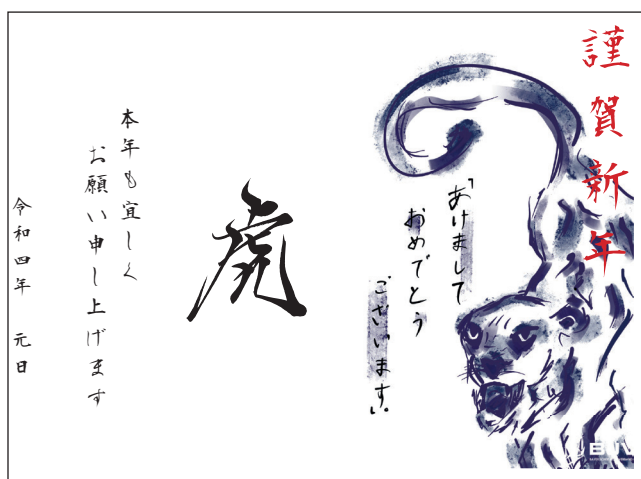 謹賀新年
「あけまして
おめでとう
ございます。」
虎
本年も宜しく
お願い申し上げます
令和四年 元日